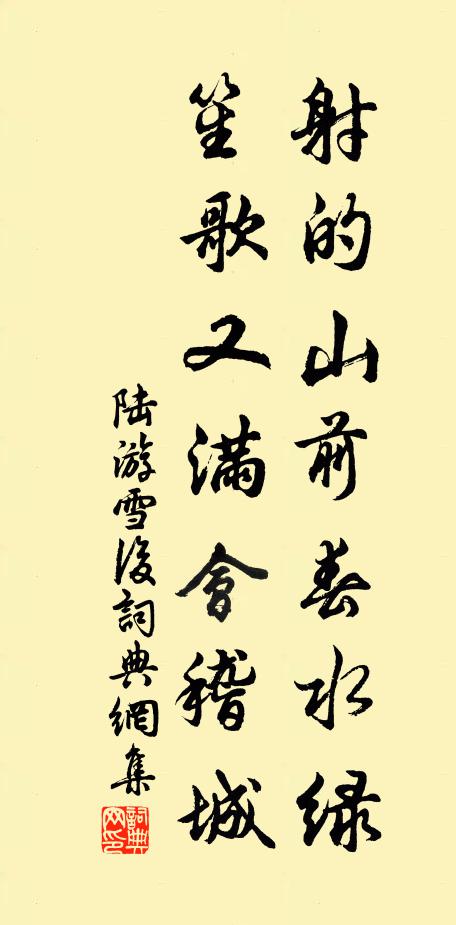 射的山前春水緑
笙歌又滿會稽城
陆游雪後詞典網集
詞典網印